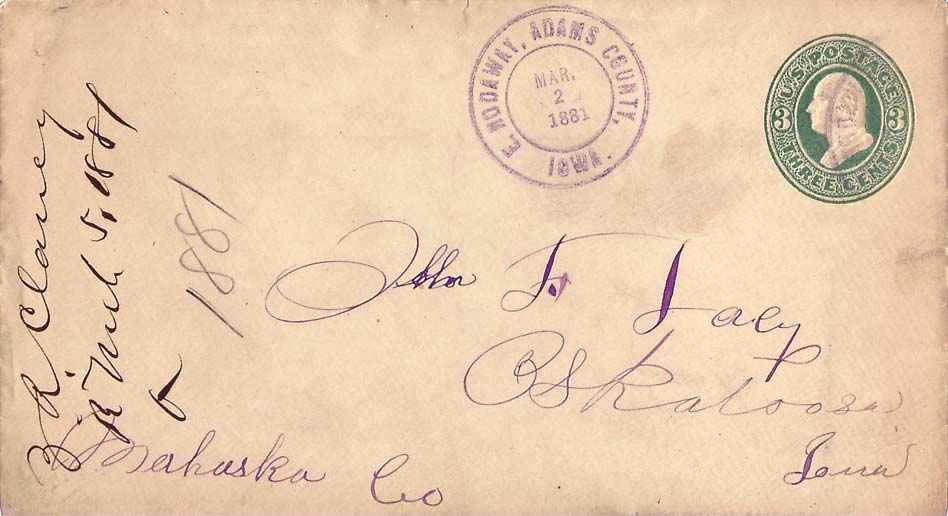 E. NODAWAY, ADAMS COUNTY,
IOWA.
MAR.
2
1881
U.S. POSTAGE
3 3
THREE CENTS
John F. Lacy
Oskaloosa
Iowa
Mahaska Co
R. Clancy
R Mch 5, 1881
1881